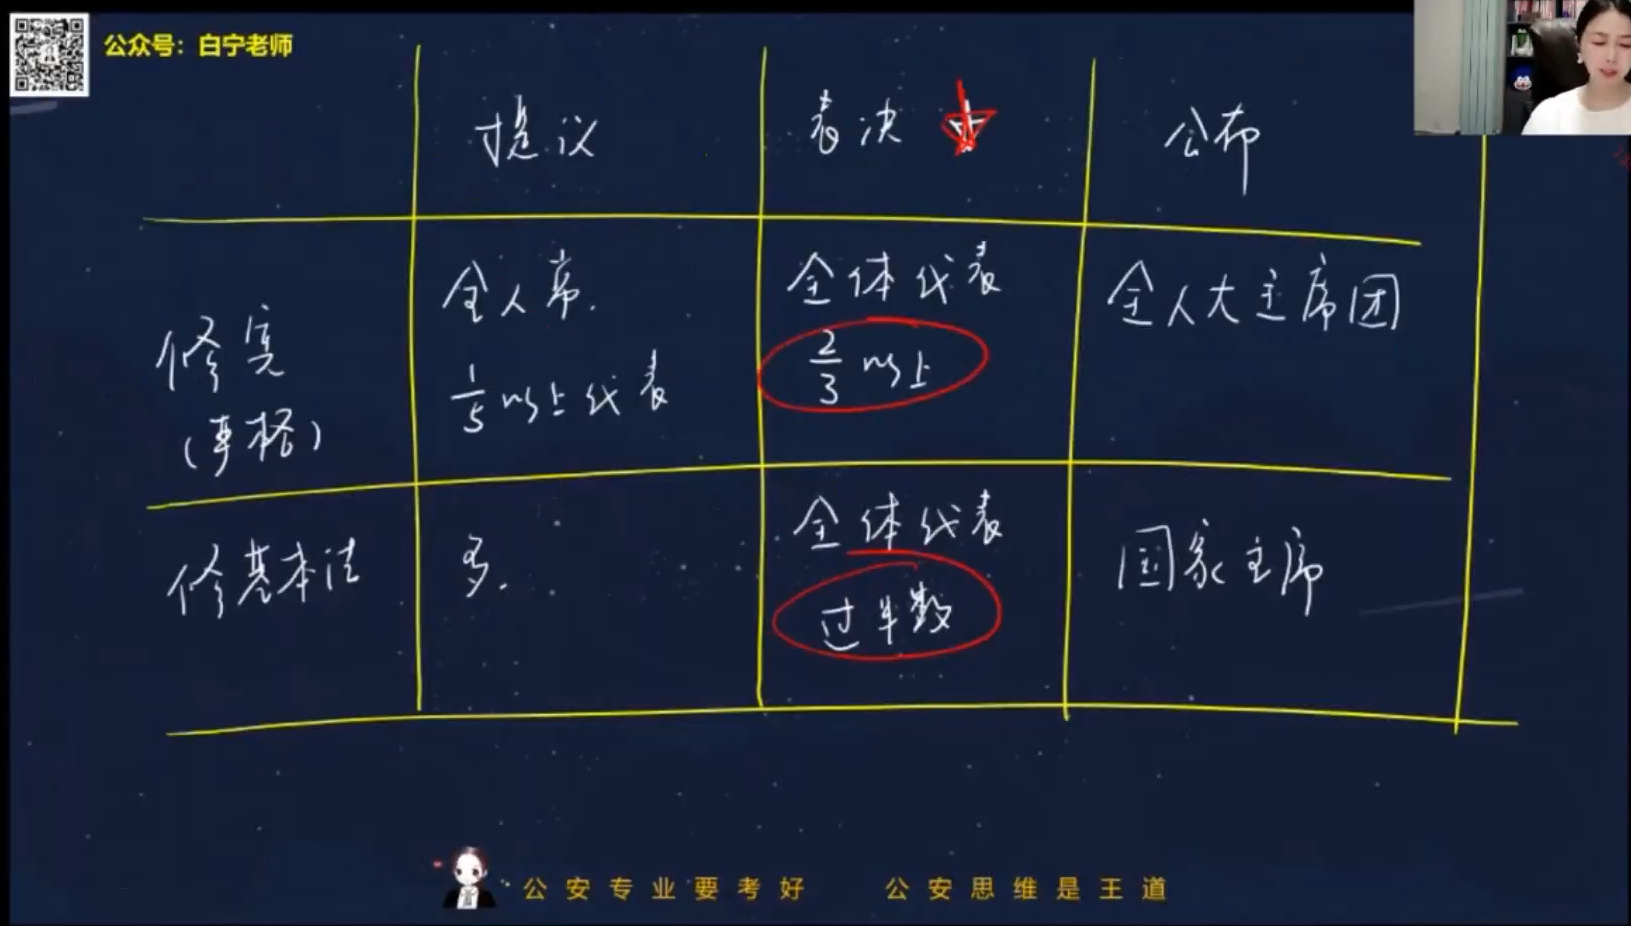 公众号：白宁老师
提议 表决 公布
修宪
(严格)
全人常.
1/5以上代表
全体代表
2/3以上
全人大主席团
修基本法
多.
全体代表
过半数
国家主席
公安专业要考好 公安思维是王道